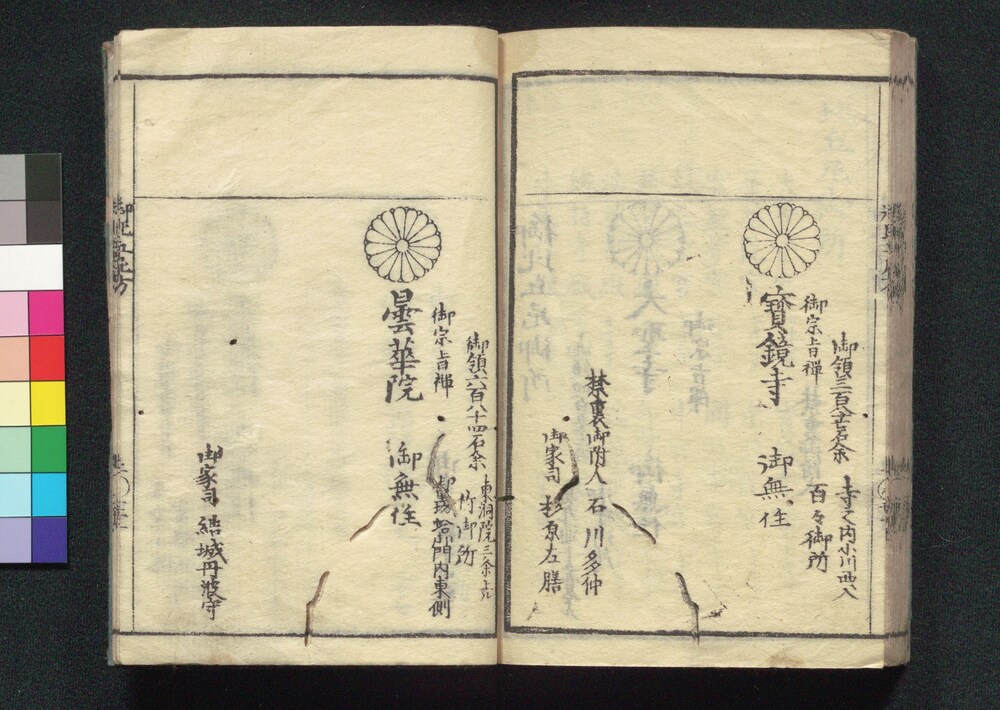 御領三百廿二石余 寺之内小川西入
御宗旨禅 百々御所
寳鏡寺 御無住
禁裏御附人 石川多仲
御家司 杉原左膳
御領六百八十四石余 東洞院三条上ル
竹御所
御宗旨禅 蛤御門内東側
曇華院 御無住
御家司 結城丹波守